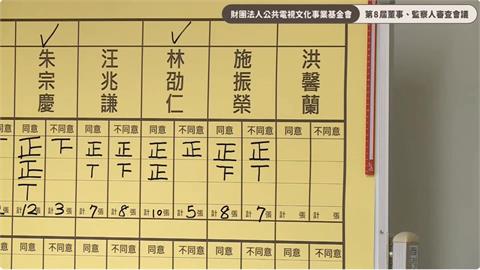 財團法人公共電視文化事業基金會 第8屆董事、監察人審查會議
朱宗慶 汪兆謙 林劭仁 施振榮 洪馨蘭
同意 同意 不同意 同意 不同意 同意 不同意 同意 不同意 同意 不同意
正 下 正 正 正 正 正 正
正 丅 下 正 下 丅
丅
計12張 計3張 計7張 計8張 計10張 計5張 計8張 計7張 計 張 計 張
不同意 同意 不同意 同意 不同意 同意 不同意 同意 不同意 同意 不同意